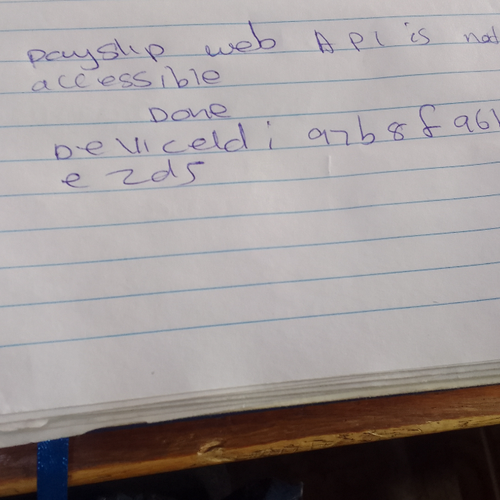 payslip web API is not
accessible
Done
DeviceId: a7b8f961
e2d5